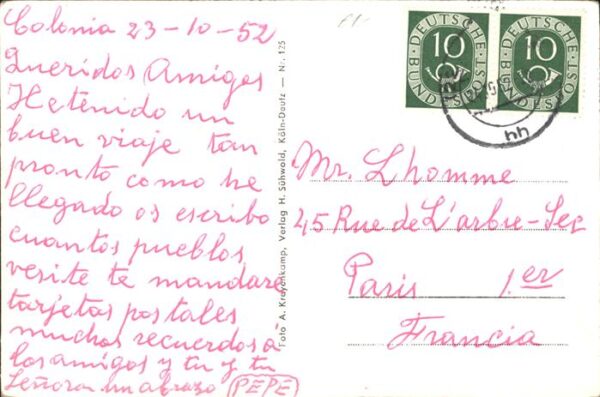 Colonia 23-10-52
Queridos Amigos
He tenido un
buen viaje tan
pronto como he
llegado os escribo
cuantos pueblos
vesite te mandaré
tarjetas postales
muchos recuerdos á
los amigos y tu y tu
Señora un abrazo (PEPE)
Foto A. Kreyenkamp, Verlag H. Sühwold, Köln-Deutz — Nr. 125
DEUTSCHE BUNDESPOST
10
DEUTSCHE BUNDESPOST
10
Mr. Lhomme
45 Rue de L'arbre-Sec
Paris 1.er
Francia